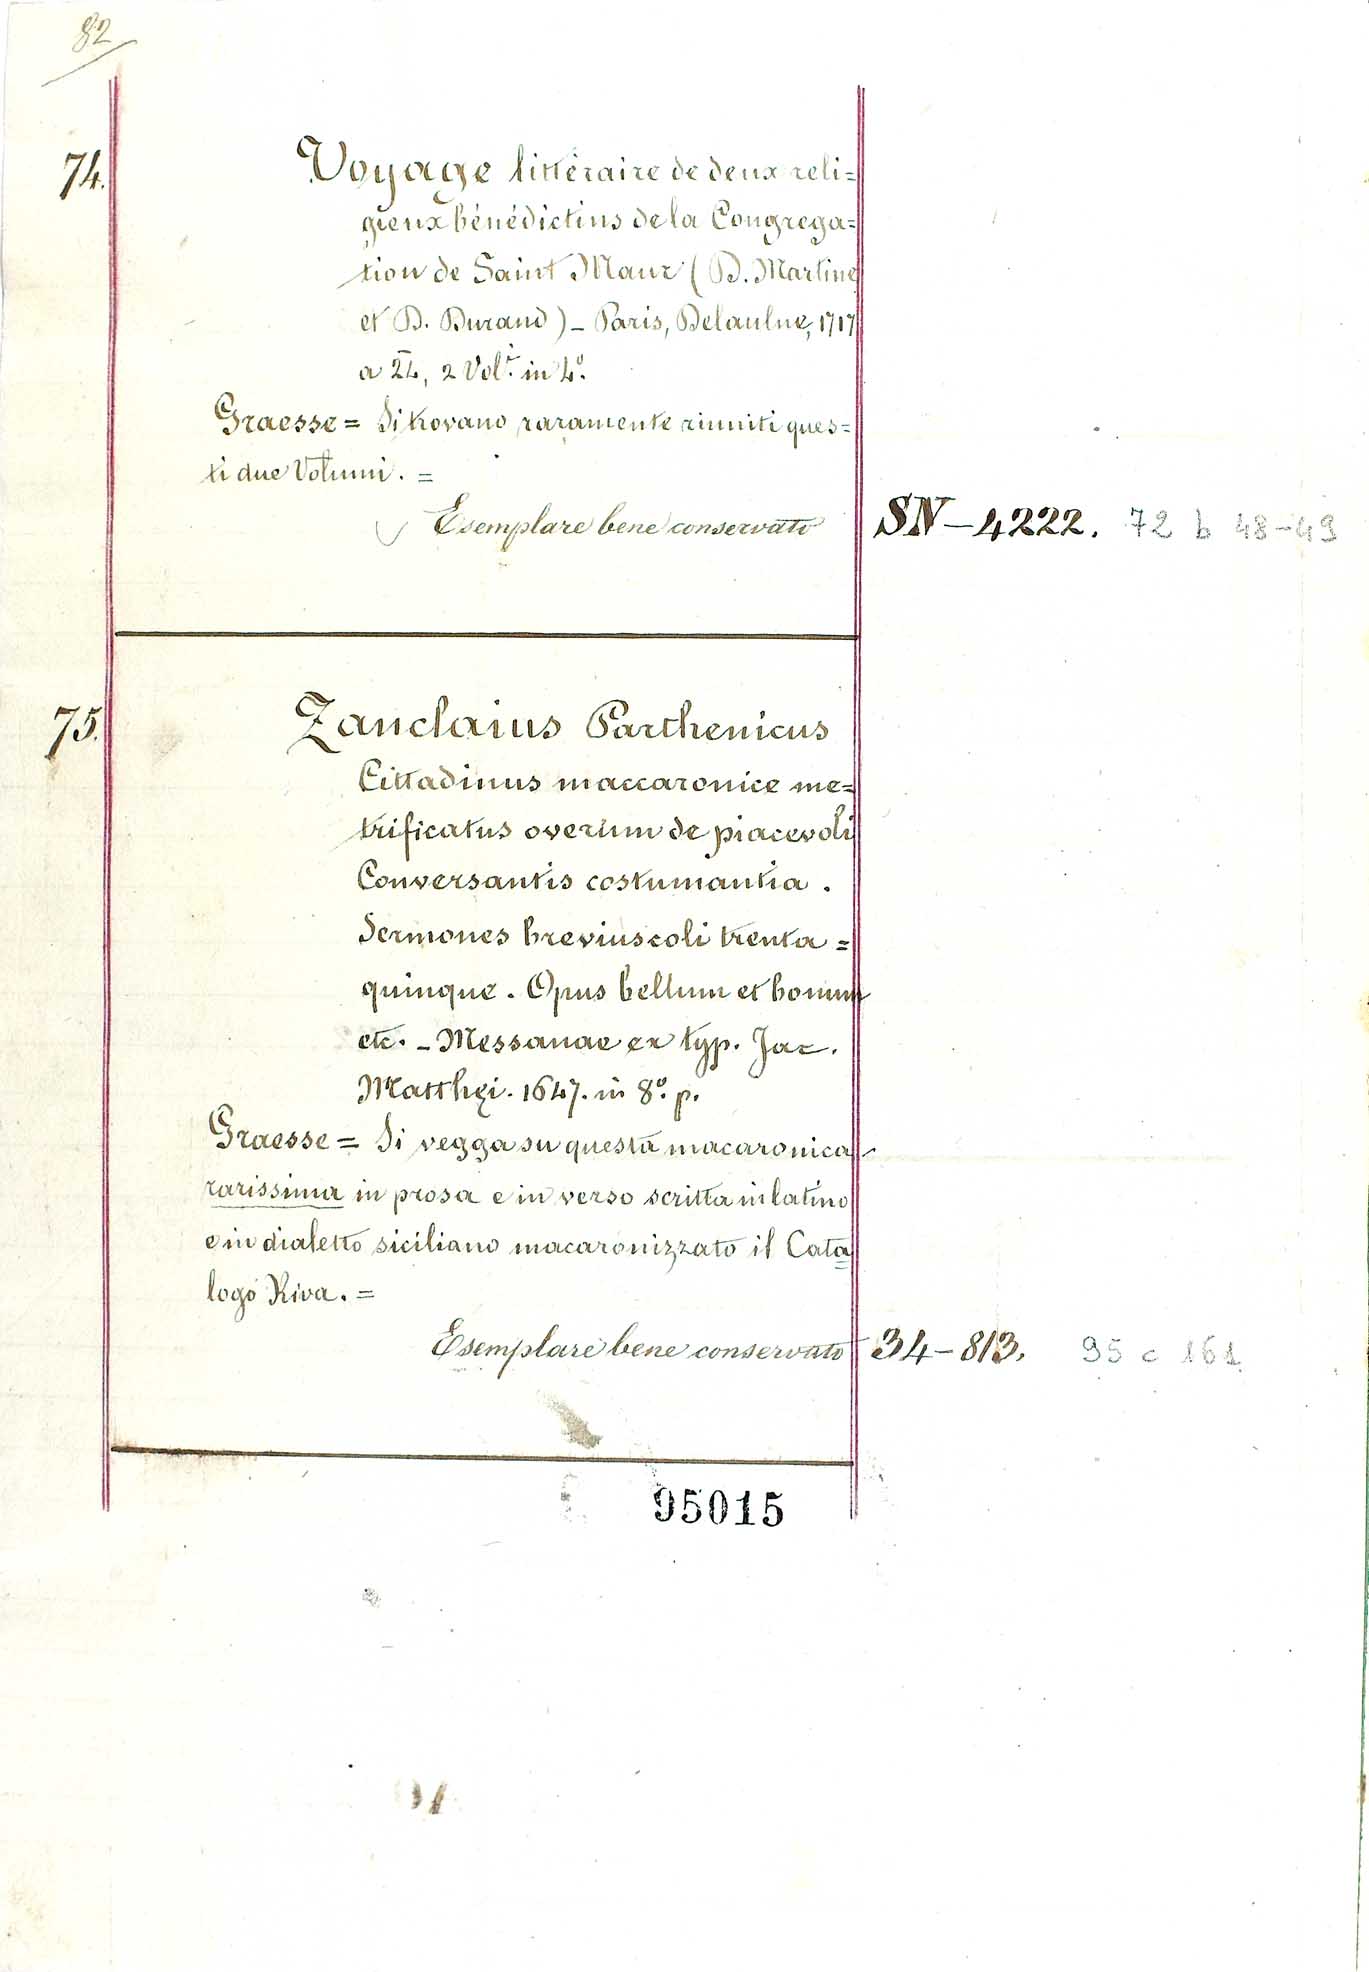 82
74. Voyage littéraire de deux reli=
gieux bénédictins de la Congrega=
tion de Saint Maur (D. Martine
et D. Durand) – Paris, Delaulne, 1717
a 24, 2 Vol.i in 4º.
Graesse = Si trovano raramente riuniti ques=
ti due Volumi. =
Esemplare bene conservato SN–4222. 72 b 48–49
75. Zanclaius Parthenicus
Cittadinus maccaronice me=
trificatus overum de piacevoli
Conversantis costumantia.
Sermones breviuscoli trenta=
quinque. Opus bellum et bonum
etc. – Messanae ex typ. Jac.
Matthęi. 1647. in 8º. p.
Graesse = Si vegga su questa macaronica
rarissima in prosa e in verso scritta in latino
e in dialetto siciliano macaronizzato il Cata=
logo Riva. =
Esemplare bene conservato 34–813. 95 c 161
95015